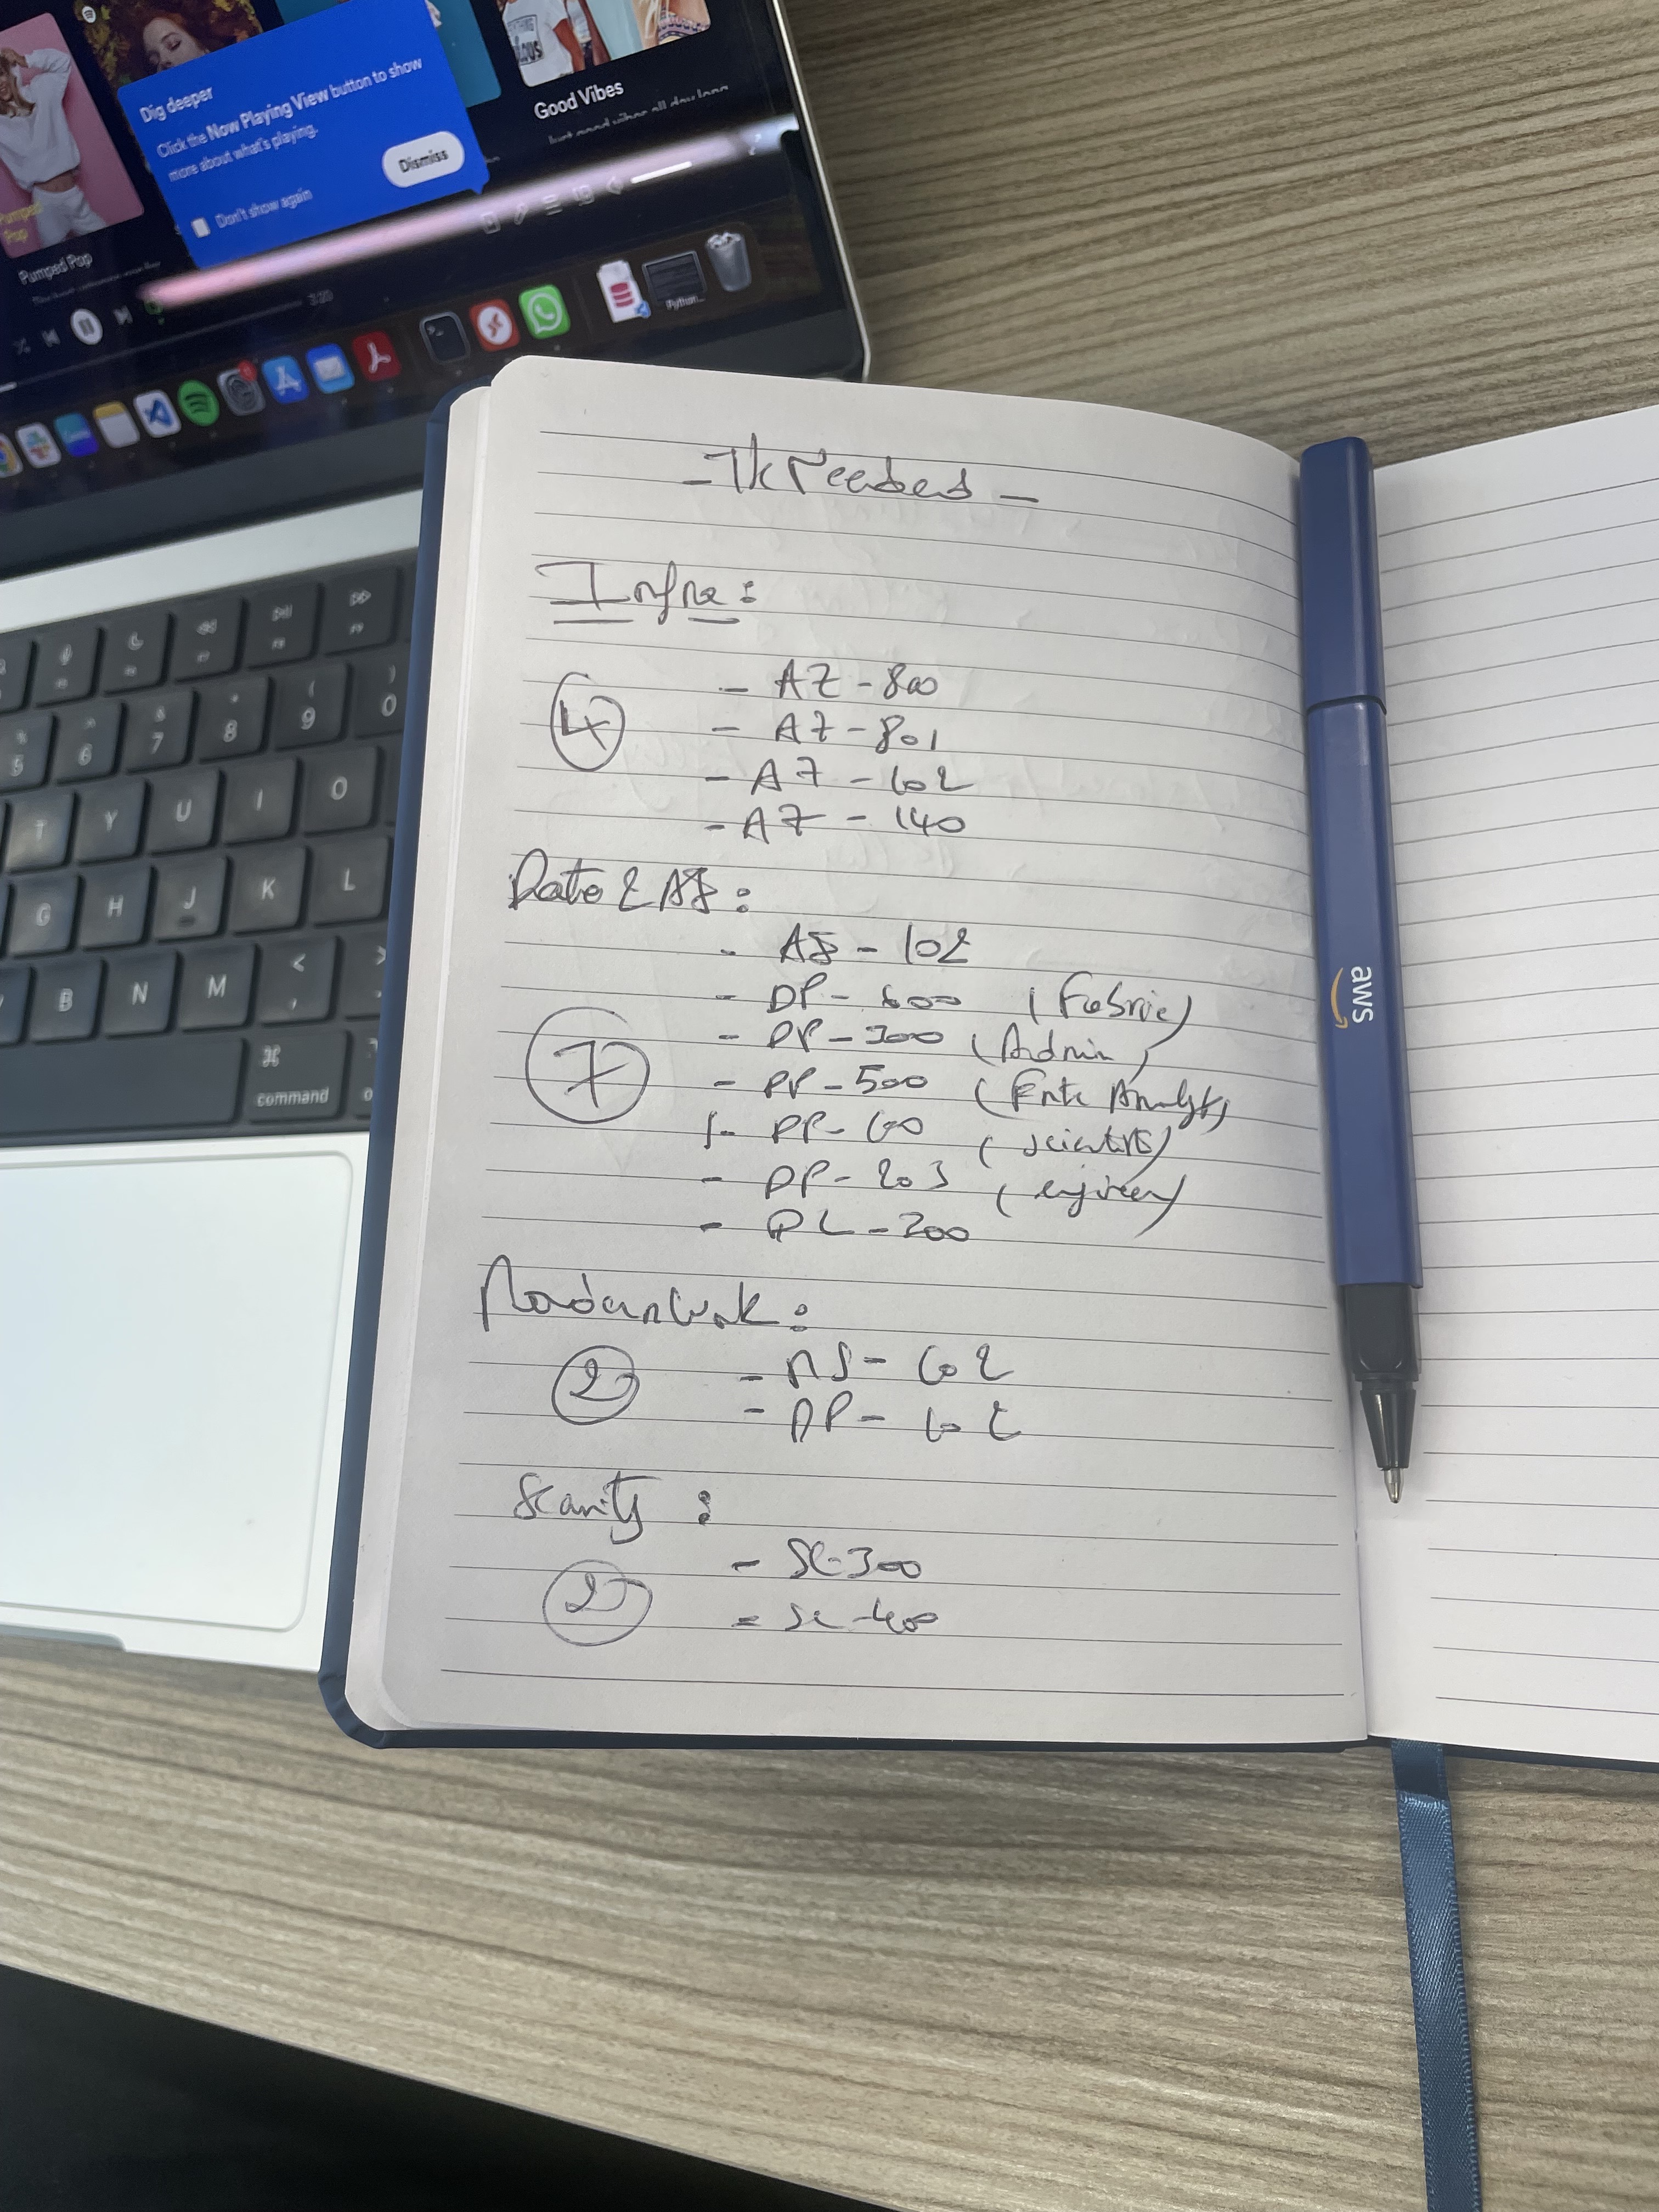 Dig deeper
Click the Now Playing View button to show
more about what's playing.
Dismiss
Don't show again
Good Vibes
Just good vibes all day long
Pumped
Pop
Pumped Pop
3:20
Python...
5
6
7
8
9
0
T Y U I O
G H J K L
B N M
command
- needed -
Infra:
4
- AZ-800
- AZ-801
- AZ-102
- AZ-140
Data & AI:
7
- AI-102
- DP-600 (Fabric)
- DP-300 (Admin)
- DP-500 (Ente Analyst)
- DP-100 (scientis)
- DP-203 (engineer)
- PL-300
Modern Work:
2
- MS-102
- MD-102
Security:
2
- SC-300
- SC-400
aws